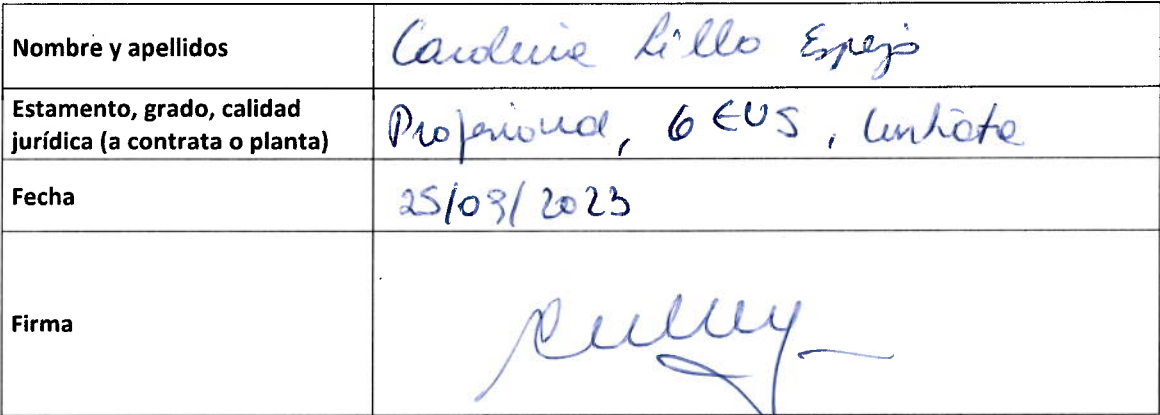 Nombre y apellidos
Carolina Lillo Espejo
Estamento, grado, calidad
jurídica (a contrata o planta)
Profesional, 6 EUS, Contrata
Fecha
25/09/2023
Firma